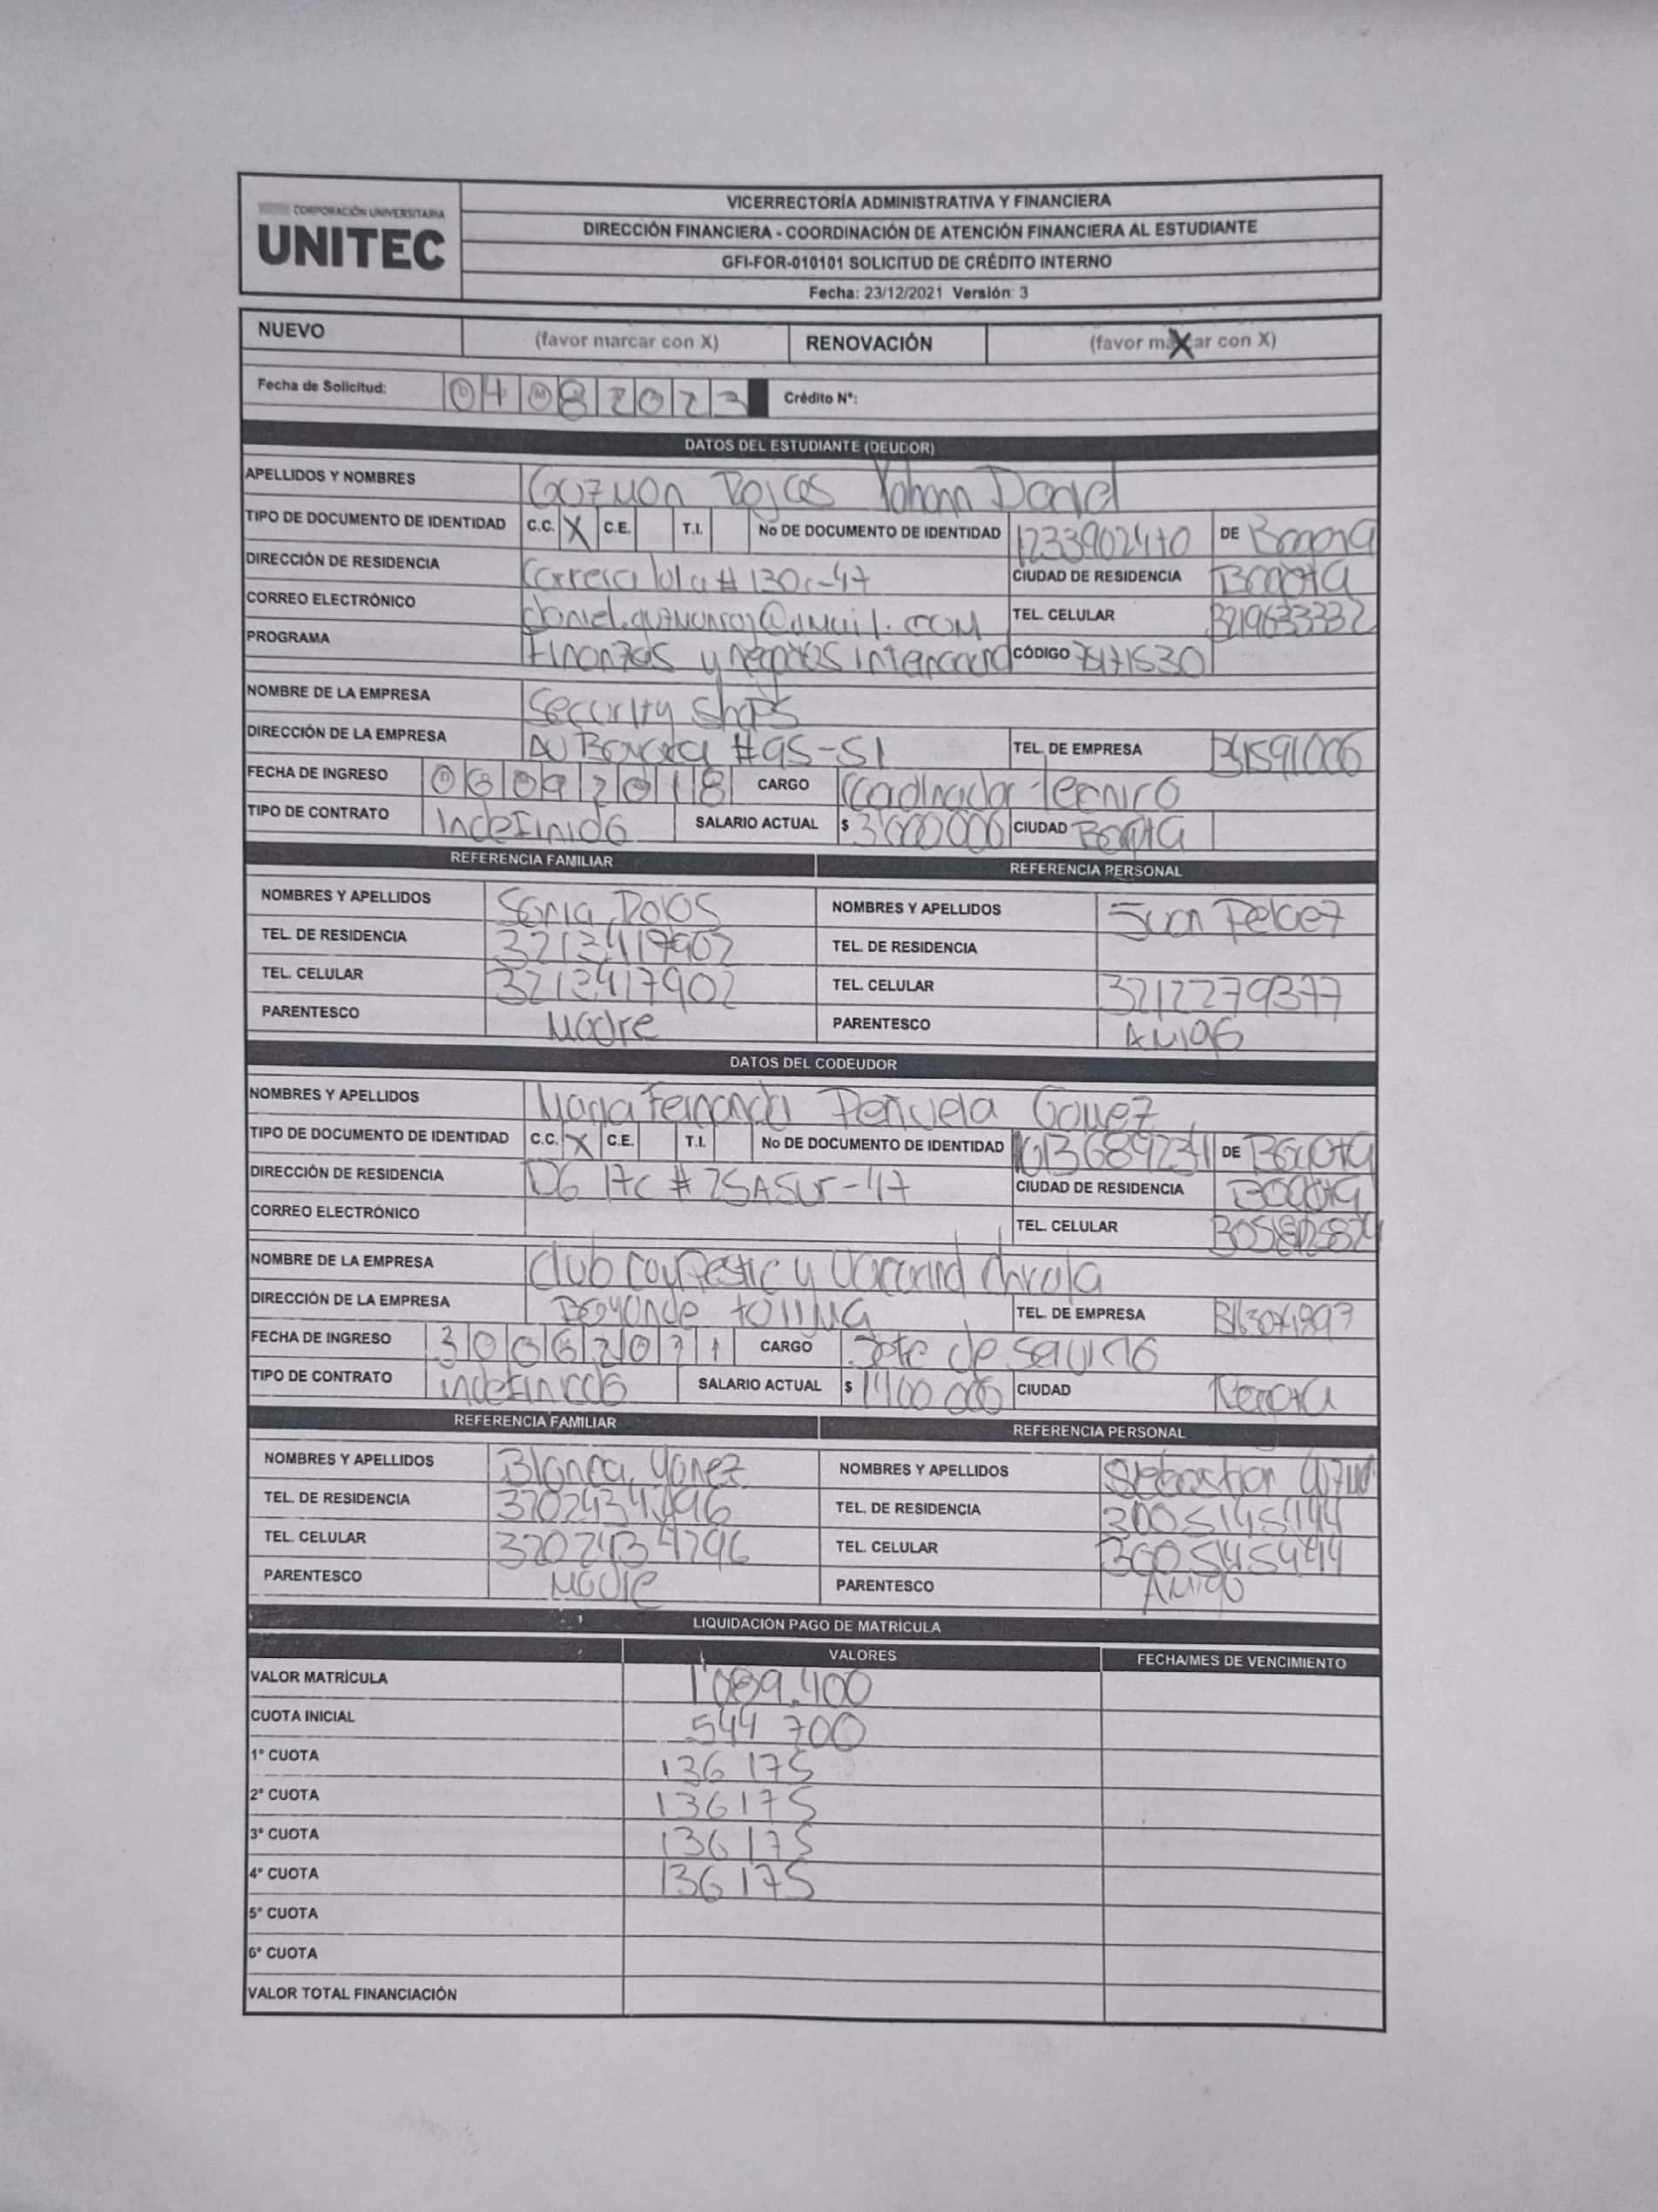 CORPORACIÓN UNIVERSITARIA
UNITEC
VICERRECTORÍA ADMINISTRATIVA Y FINANCIERA
DIRECCIÓN FINANCIERA - COORDINACIÓN DE ATENCIÓN FINANCIERA AL ESTUDIANTE
GFI-FOR-010101 SOLICITUD DE CRÉDITO INTERNO
Fecha: 23/12/2021 Versión: 3
NUEVO (favor marcar con X) RENOVACIÓN (favor marcar con X) X
Fecha de Solicitud: 04082023 Crédito N°:
DATOS DEL ESTUDIANTE (DEUDOR)
APELLIDOS Y NOMBRES Guzman Rojas Yohann Daniel
TIPO DE DOCUMENTO DE IDENTIDAD C.C. X C.E. T.I. No DE DOCUMENTO DE IDENTIDAD 1233902470 DE Bogota
DIRECCIÓN DE RESIDENCIA Carrera # 130c-47 CIUDAD DE RESIDENCIA Bogota
CORREO ELECTRÓNICO daniel.guzmanroj@gmail.com TEL. CELULAR 3219633332
PROGRAMA Finanzas y negocios CÓDIGO 75171530
NOMBRE DE LA EMPRESA Security Shops
DIRECCIÓN DE LA EMPRESA AV Boyaca #95-51 TEL. DE EMPRESA
FECHA DE INGRESO 06092018 CARGO Coordinador Tecnico
TIPO DE CONTRATO Indefinido SALARIO ACTUAL $ 3'000000 CIUDAD Bogota
REFERENCIA FAMILIAR REFERENCIA PERSONAL
NOMBRES Y APELLIDOS Sonia Rojas NOMBRES Y APELLIDOS Juan Pelaez
TEL. DE RESIDENCIA 3213417902 TEL. DE RESIDENCIA
TEL. CELULAR 3213417902 TEL. CELULAR 3212279377
PARENTESCO Madre PARENTESCO Amigo
DATOS DEL CODEUDOR
NOMBRES Y APELLIDOS Maria Fernanda Peñuela Gomez
TIPO DE DOCUMENTO DE IDENTIDAD C.C. X C.E. T.I. No DE DOCUMENTO DE IDENTIDAD 1013689231 DE Bogota
DIRECCIÓN DE RESIDENCIA DG 17c # 25ASur-47 CIUDAD DE RESIDENCIA Bogota
CORREO ELECTRÓNICO TEL. CELULAR
NOMBRE DE LA EMPRESA Club y
DIRECCIÓN DE LA EMPRESA tolima TEL. DE EMPRESA
FECHA DE INGRESO 30062021 CARGO Jefe de
TIPO DE CONTRATO indefinido SALARIO ACTUAL $ 1400 000 CIUDAD
REFERENCIA FAMILIAR REFERENCIA PERSONAL
NOMBRES Y APELLIDOS Blanca NOMBRES Y APELLIDOS Sebastian
TEL. DE RESIDENCIA TEL. DE RESIDENCIA 3005145494
TEL. CELULAR 3202434296 TEL. CELULAR 3005145494
PARENTESCO Madre PARENTESCO Amigo
LIQUIDACIÓN PAGO DE MATRÍCULA
VALORES FECHA/MES DE VENCIMIENTO
VALOR MATRÍCULA 1'089.400
CUOTA INICIAL 544 700
1ª CUOTA 136 175
2ª CUOTA 136175
3ª CUOTA 136 175
4ª CUOTA 136 175
5ª CUOTA
6ª CUOTA
VALOR TOTAL FINANCIACIÓN